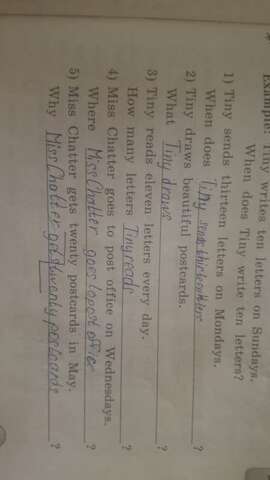 Example: Tiny writes ten letters on Sundays.
When does Tiny write ten letters?
1) Tiny sends thirteen letters on Mondays.
When does Tiny sends thirteen letters ?
2) Tiny draws beautiful postcards.
What Tiny draws ?
3) Tiny reads eleven letters every day.
How many letters Tiny reads ?
4) Miss Chatter goes to post office on Wednesdays.
Where Miss Chatter goes to post office ?
5) Miss Chatter gets twenty postcards in May.
Why Miss Chatter gets twenty postcards ?